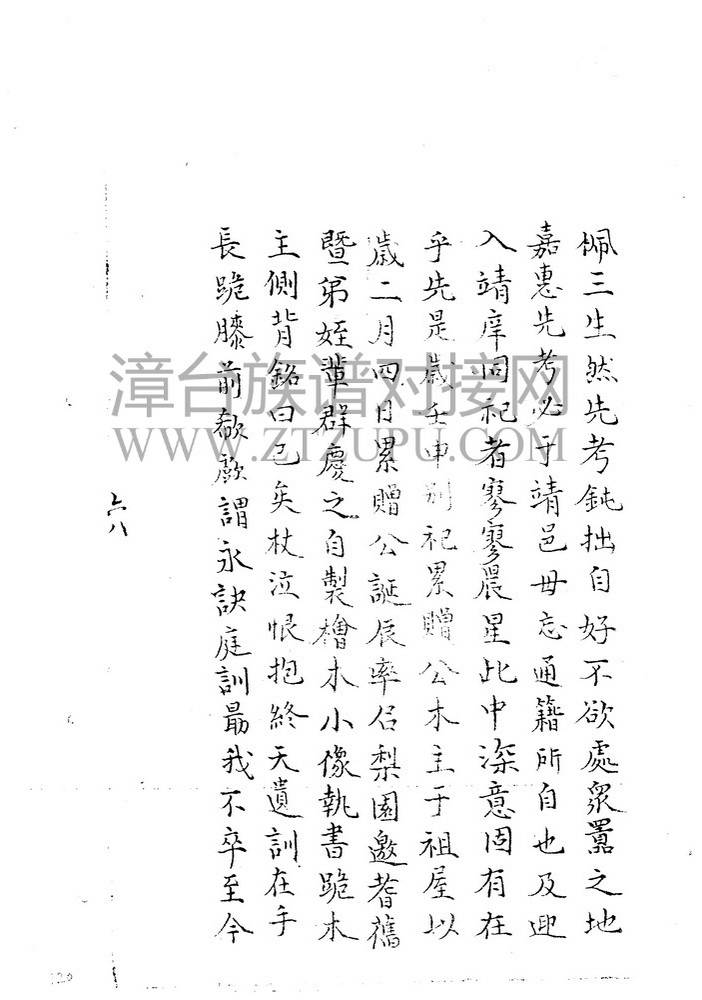 佩三生然先考鈍拙自好不欲處衆囂之地
嘉惠先考必于靖邑毋忘通籍所自也及迎
入靖庠同祀者寥寥晨星此中深意固有在
乎先是歲壬申別祀累贈公木主于祖屋以
歲二月四日累贈公誕辰率召梨園邀耆舊
暨弟姪輩群慶之自製檜木小像執書跪木
主側背銘曰弓矢杖泣恨抱終天遺訓在手
長跪膝前欷歔謂永訣庭訓最我不卒至今
六八
漳台族谱对接网
WWW.ZTZUPU.COM
120